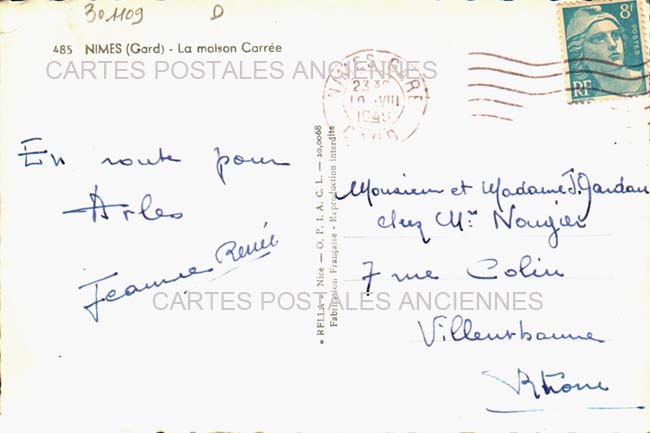 301109 D
485 NIMES (Gard) - La maison Carrée
CARTES POSTALES ANCIENNES
En route pour
Arles
Jeanne Renée
« RELLA » Nice — O. P. I. A. C. L. — 20,0068
Fabrication Française - Reproduction interdite
NIMES GARE
23 30
10 VIII
1949
GARD
8F
POSTES
RF
Monsieur et Madame J. Jardan
chez Mr Nougier
7 rue Colin
Villeurbanne
Rhône
CARTES POSTALES ANCIENNES